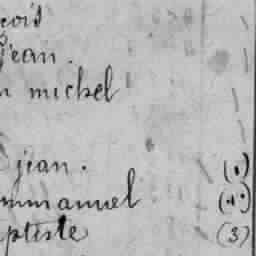 cois
Jean.
n michel
jean. (1)
mmanuel (4°)
ptiste (3)